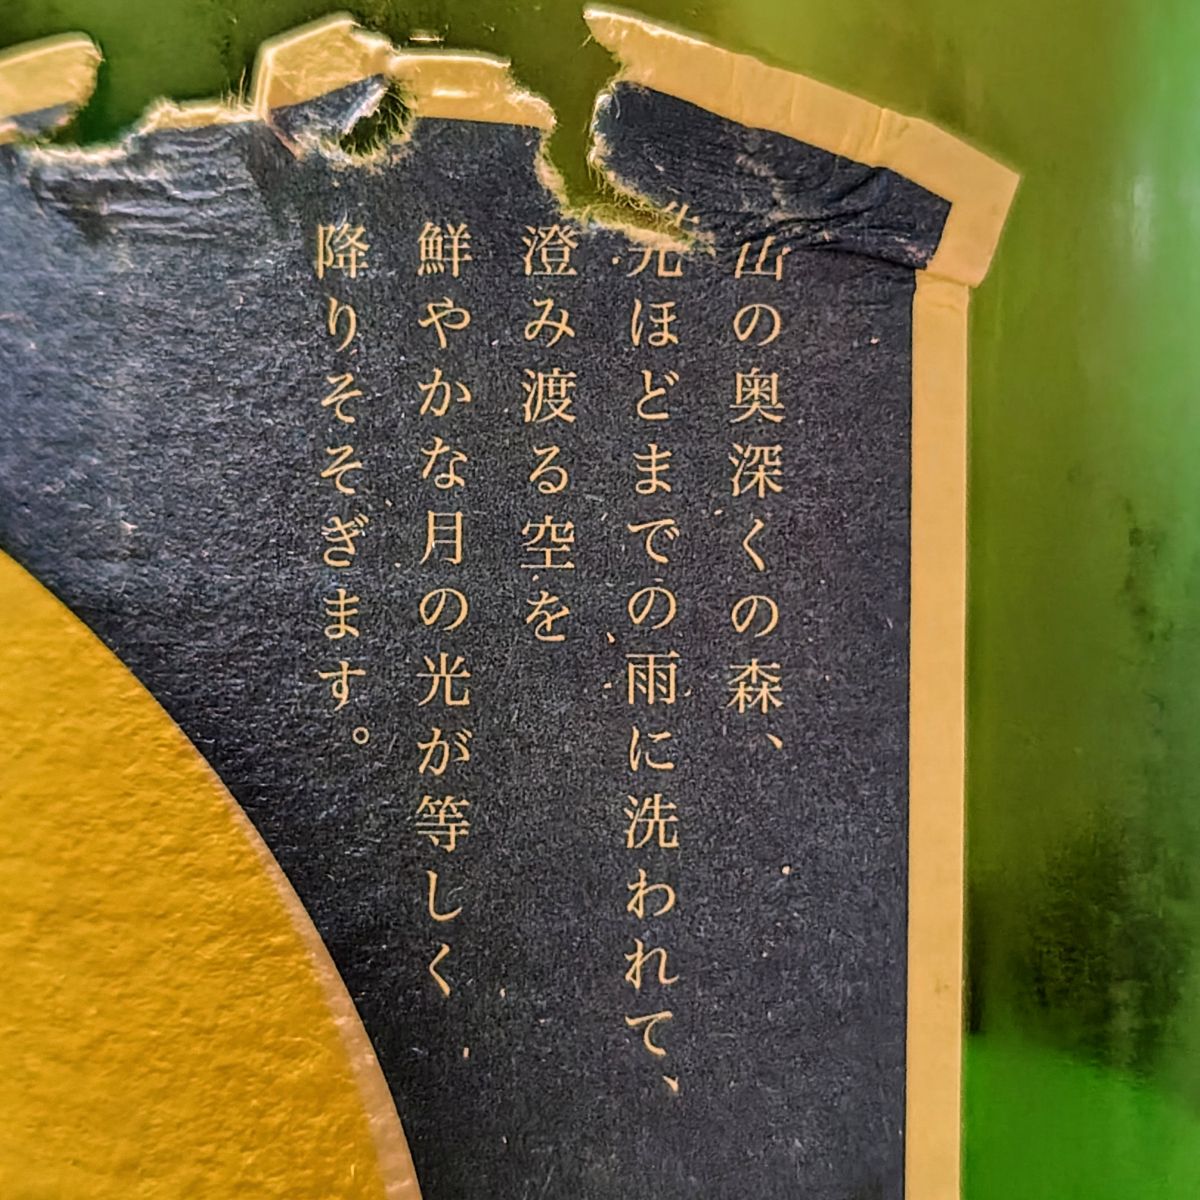 山の奥深くの森、
先ほどまでの雨に洗われて、
澄み渡る空を
鮮やかな月の光が等しく
降りそそぎます。